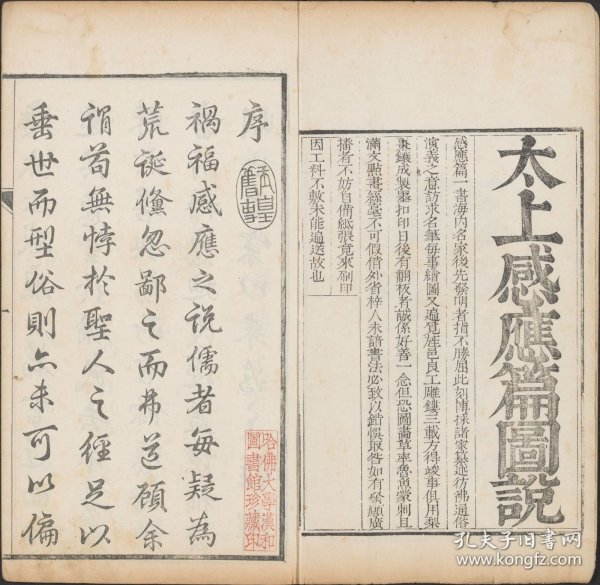 太上感應篇圖說
感應篇一書海內名家後先發明者指不勝屈此刻博採諸家蹟逝彷彿通俗
演義之意訪求名筆每事繪圖又遍覓旌邑良工雕鏤三載方得竣事俱用梨
棗鑲成製墨扣印日後有翻板者誠係好善一念但恐圖畫草率魯魚蒙刺且
滿文點畫絲毫不可假借外省梓人未諳書法必致以錯悞取咎如有發願廣
播者不妨自備紙張竟來刷印
因工料不敷未能遍送故也
序
禍福感應之說儒者每疑為
荒誕儵忽鄙之而弗道顧余
謂苟無悖於聖人之經足以
垂世而型俗則亦未可以偏
哈佛大學漢和
圖書館珍藏印
孔夫子旧书网
www.kongfz.com